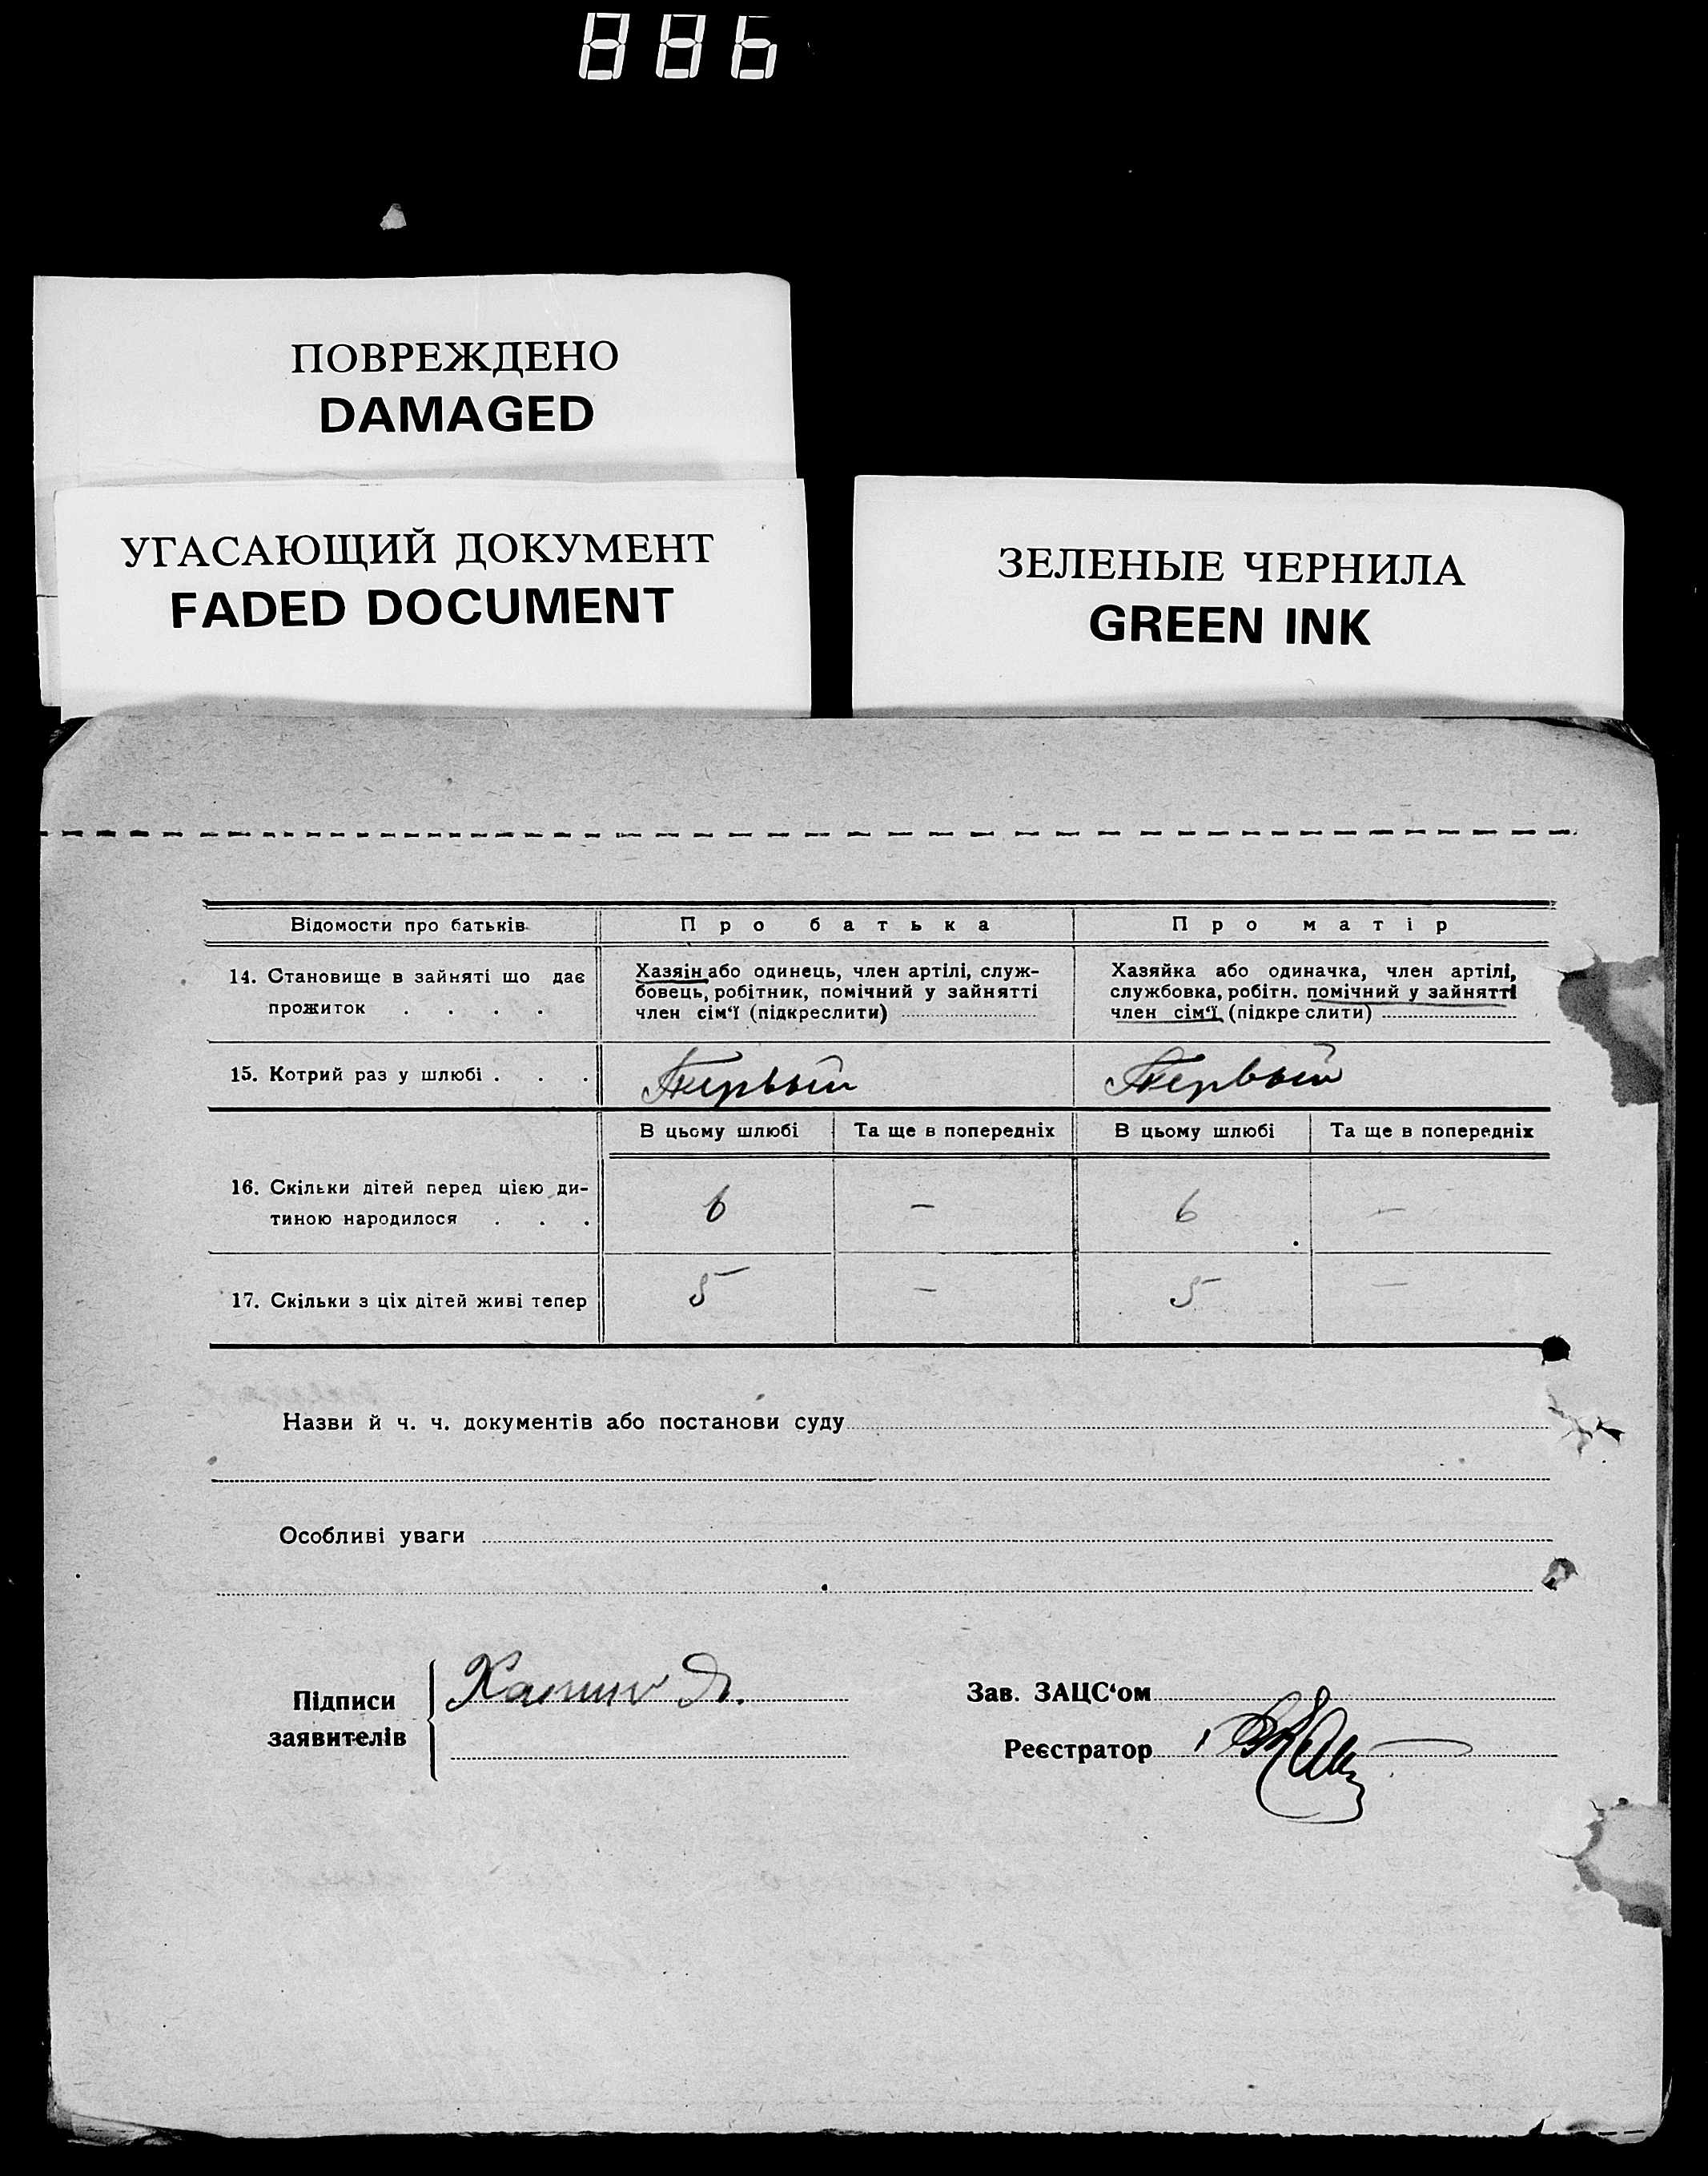 886
ПОВРЕЖДЕНО
DAMAGED
УГАСАЮЩИЙ ДОКУМЕНТ
FADED DOCUMENT
ЗЕЛЕНЫЕ ЧЕРНИЛА
GREEN INK
Відомости про батьків
Про батька
Про матір
14. Становище в зайняті що дає
прожиток . . . .
Хазяін або одинець, член артілі, служ-
бовець, робітник, помічний у зайнятті
член сім'ї (підкреслити)
Хазяйка або одиначка, член артілі,
службовка, робітн. помічний у зайнятті
член сім'ї (підкреслити)
15. Котрий раз у шлюбі . . .
Первый
Первый
В цьому шлюбі
Та ще в попередніх
В цьому шлюбі
Та ще в попередніх
16. Скільки дітей перед цією ди-
тиною народилося . . .
6
–
6
–
17. Скільки з ціх дітей живі тепер
5
–
5
–
Назви й ч. ч. документів або постанови суду
Особливі уваги
Підписи
заявителів
Зав. ЗАЦС'ом
Реєстратор